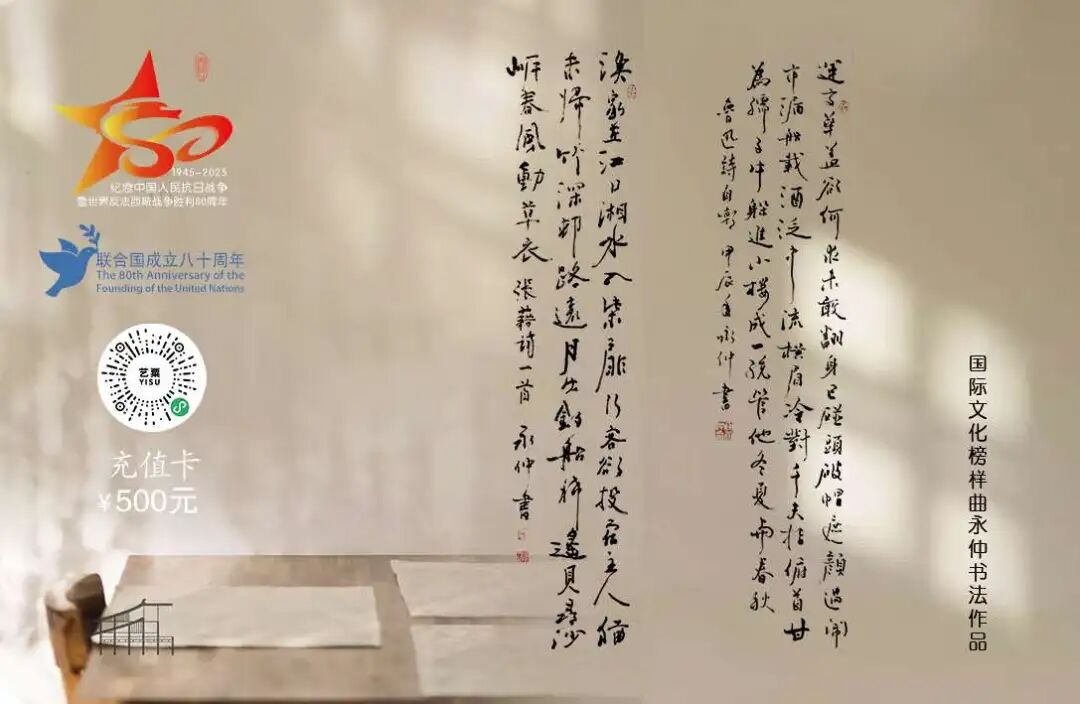 80
1945-2025
纪念中国人民抗日战争
暨世界反法西斯战争胜利80周年
联合国成立八十周年
The 80th Anniversary of the
Founding of the United Nations
艺粟
YISU
充值卡
¥500元
運交華蓋欲何求未敢翻身已碰頭破帽遮顏過鬧
市漏船載酒泛中流橫眉冷對千夫指俯首甘
為孺子牛躲進小樓成一統管他冬夏與春秋
魯迅詩自嘲 甲辰年永仲書
漁家在江口潮水入柴扉行客欲投宿主人猶
未歸竹深邨路遠月出釣船稀遙見尋沙
岸春風動草衣 張籍詩一首 永仲書
国际文化榜样曲永仲书法作品